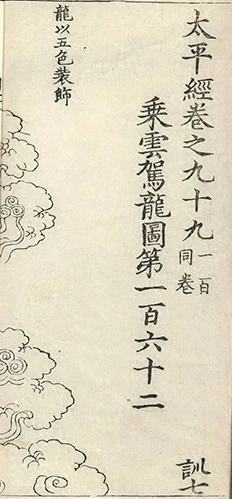 太平經卷之九十九
一百同卷
訓七
乘雲駕龍圖第一百六十二
龍以五色裝飾